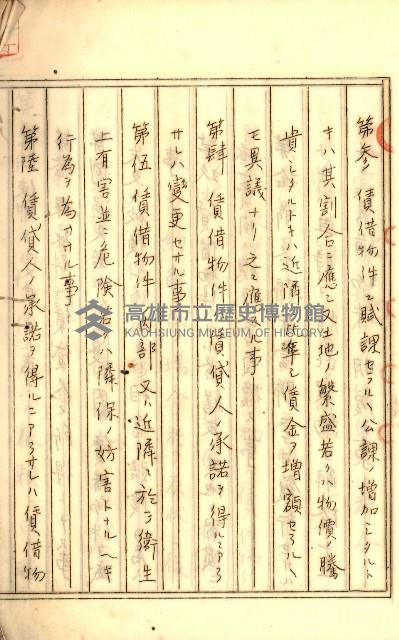 第參 賃借物件ニ賦課セラルヽ公課ノ增加シタルト
キハ其割合ニ應シ又土地ノ繁盛若クハ物價ノ騰
貴シタルトキハ近隣ニ準シ賃金ヲ增額セラルヽ
モ異議ナク之ニ應スル事
第肆 賃借物件ハ賃貸人ノ承諾ヲ得ルニアラ
サレハ變更セサル事
第伍 賃借物件ノ內部又ハ近隣ニ於テ衛生
上有害並ニ危險若クハ隣保ノ妨害トナルヘキ
行為ヲ為ササル事
第陸 賃貸人ノ承諾ヲ得ルニアラサレハ賃借物
高雄市立歷史博物館
KAOHSIUNG MUSEUM OF HISTORY